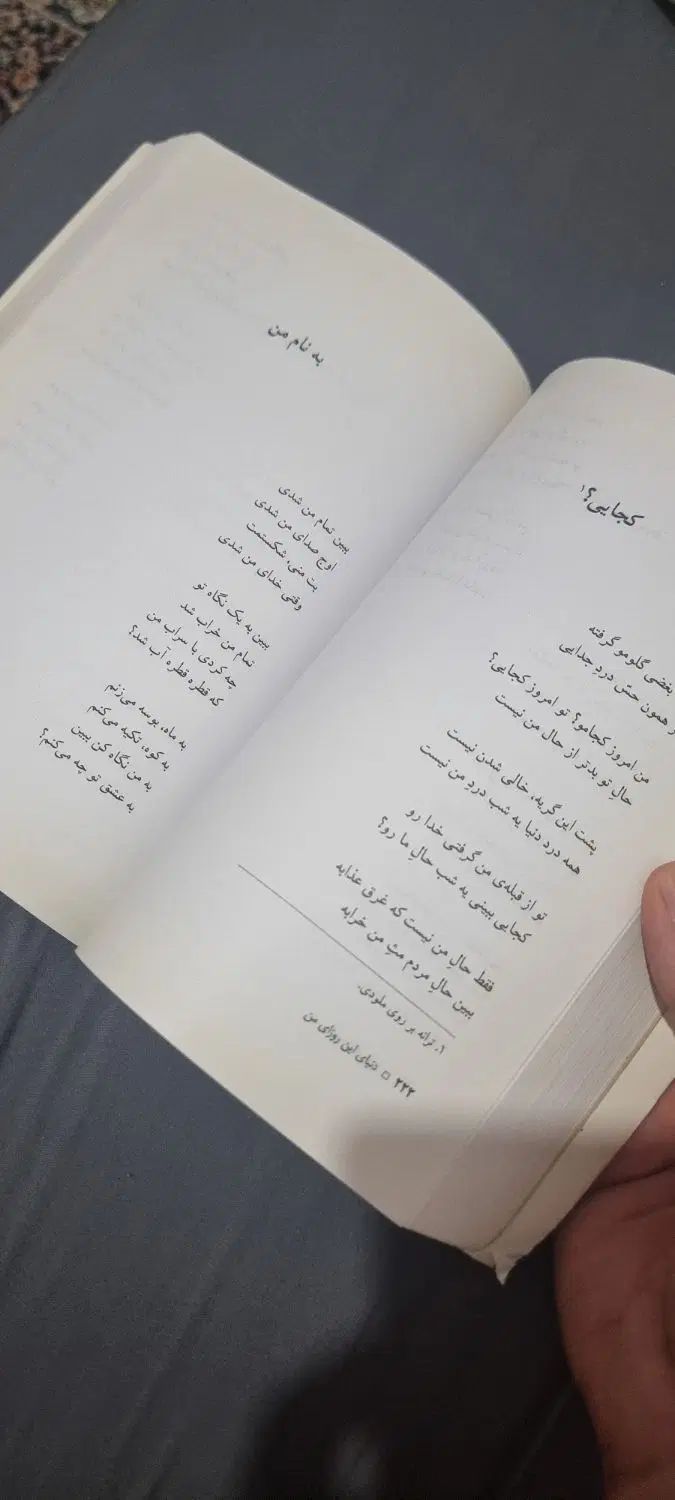 کجایی؟۱
بغضی گلومو گرفته
همون حسّ دردِ جدایی
من امروز کجامو؟ تو امروز کجایی؟
حالِ تو بدتر از حال من نیست
پشت این گریه، خالی شدن نیست
همه درد دنیا یه شب دردِ من نیست
تو از قبله‌ی من گرفتی خدا رو
کجایی ببینی یه شب حالِ ما رو؟
فقط حالِ من نیست که غرق عذابه
ببین حالِ مردم مثِ من خرابه
۱. ترانه بر روی ملودی.
۲۲۲ □ دنیای این روزای من
به نام من
ببین تمام من شدی
اوج صدای من شدی
بت منی، شکستمت
وقتی خدای من شدی
ببین به یک نگاه تو
تمام من خراب شد
چه کردی با سراب من
که قطره قطره آب شد؟
به ماه، بوسه می‌زنم
به کوه، تکیه می‌کنم
به من نگاه کن ببین
به عشق تو چه می‌کنم؟